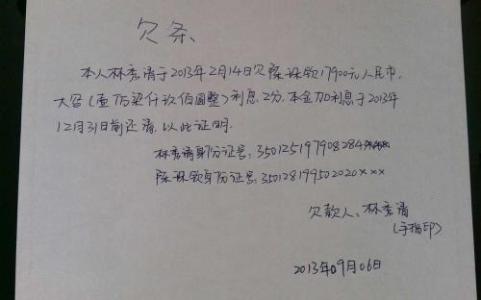 欠条
本人林秀清于2013年2月14日欠陈珠领17900元人民币.
大写(壹万柒仟玖佰圆整)利息2分.本金加利息于2013年
12月31日前还清.以此证明.
林秀清身份证号:350125197908284
陈珠领身份证号:350128199502020×××
欠款人:林秀清
(手指印)
2013年09月06日